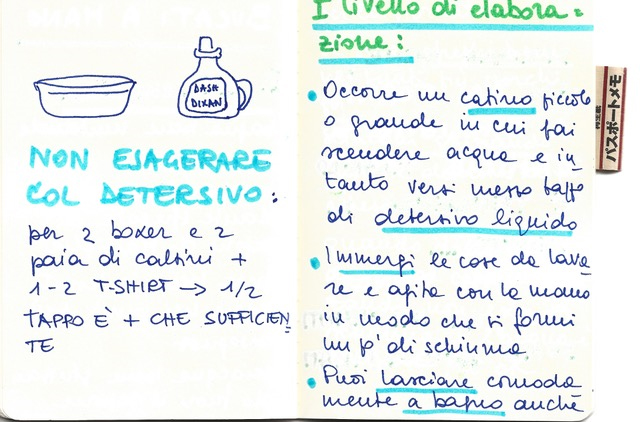 DASH
DIXAN
NON ESAGERARE
COL DETERSIVO:
per 2 boxer e 2
paia di calzini +
1-2 T-SHIRT → 1/2
TAPPO È + CHE SUFFICIEN
TE
I livello di elabora-
zione:
• Occorre un catino piccolo
o grande in cui fai
scendere acqua e in
tanto versi mezzo tappo
di detersivo liquido
• Immergi le cose da lava
re e agita con la mano
in modo che si formi
un p' di schiuma
• Puoi lasciare comoda
mente a bagno anche
パスポートメモ